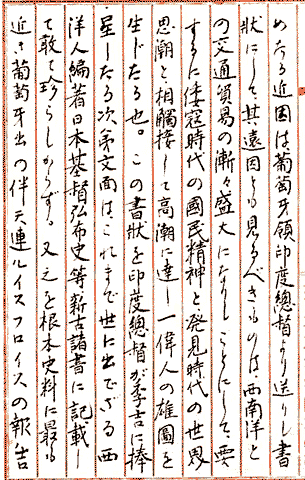 めたる近因は葡萄牙領印度總督より送りし書
狀にして其遠因とも見るべきものは、西南洋と
の交通貿易の漸々盛大になりしことにして、要
するに倭寇時代の國民精神と発見時代の世界
思潮と相觸接して高潮に達し一偉人の雄圖を
生じたる也。この書狀を印度總督が秀吉に捧
呈したる次第文面はこれまで世に出でざる西
洋人編著日本基督弘布史等新古諸書に記載し
て敢て珍らしからず。又之を根本史料に最も
近き葡萄牙出の伴天連ルイスフロイスの報告